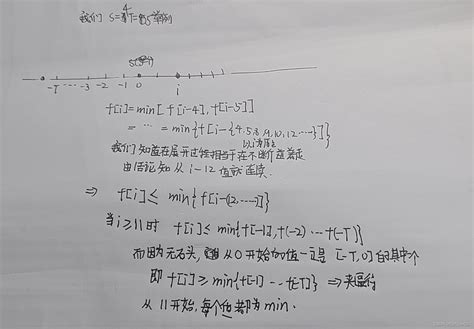 我们 S=4 T=5 举例
-T ... -3 -2 -1 0 i
f[i]=min[f[i-4],f[i-5]]
=...=min{f[i-{4,5,8,9,10,12...}]}
以i为原点
我们知道在展开过程相当于在不断往左走
由结论知从i-12 值就连续
⇒ f[i]≤ min{f[i-(12...)]}
当i≥11时 f[i]≤min{f[-1],f(-2)...f(-T)}
而因为无石头, 从0开始的值一定是 [-T,0]的其中个
即 f[i]≥min{f[-1]...f[-T]} ⇒ 夹逼得
从11开始,每个值都为min.